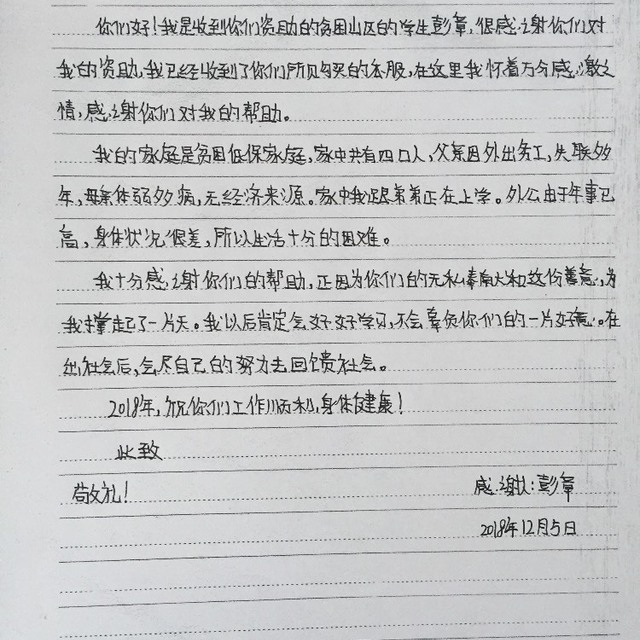 你们好！我是收到你们资助的贫困山区的学生彭章，很感谢你们对
我的资助，我已经收到了你们所购买的衣服，在这里我怀着万分感激之
情，感谢你们对我的帮助。
我的家庭是贫困低保家庭，家中共有四口人，父亲因外出务工，失联多
年，母亲体弱多病，无经济来源。家中我跟弟弟正在上学。外公由于年事已
高，身体状况很差，所以生活十分的困难。
我十分感谢你们的帮助，正因为你们的无私奉献和这份善意，为
我撑起了一片天。我以后肯定会好好学习，不会辜负你们的一片好意。在
出社会后，会尽自己的努力去回馈社会。
2018年，祝你们工作顺利，身体健康！
此致
敬礼！
感谢人：彭章
2018年12月5日